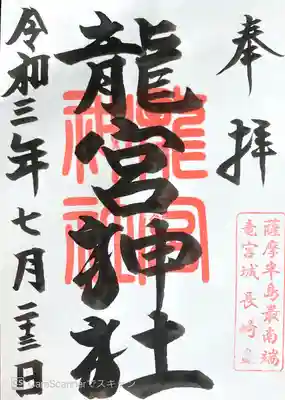 奉拝
龍宮神社
龍宮神社
薩摩半島最南端
竜宮城 長崎鼻
令和三年七月二十三日
CamScannerでスキャン